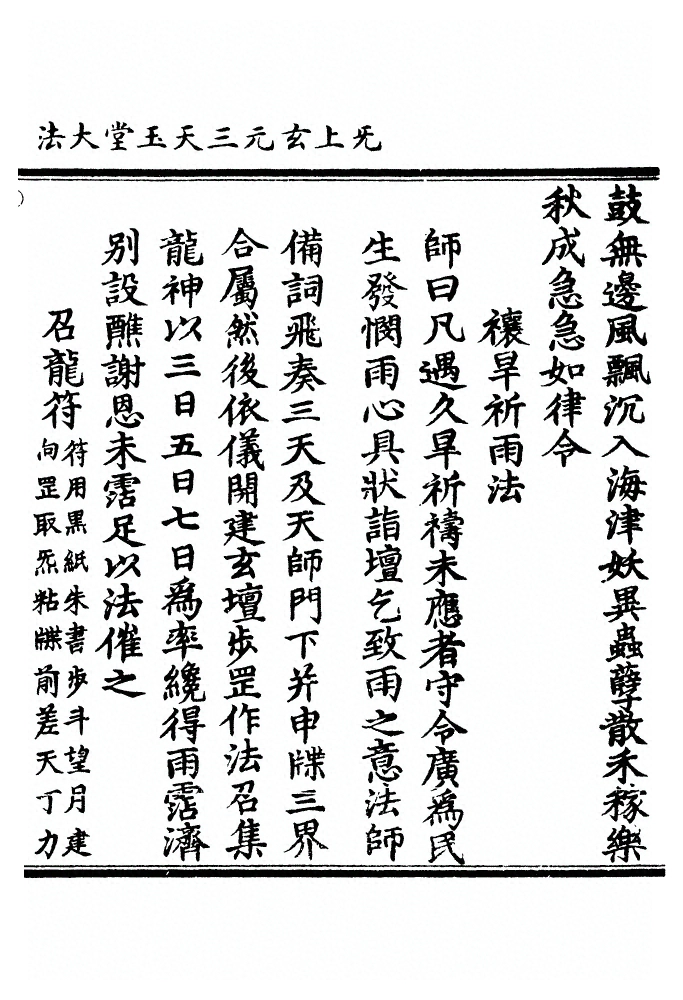 法大堂玉天三元玄上旡
鼓無邊風飄沉入海津妖異蟲孽散禾稼樂
秋成急急如律令
禳旱祈雨法
師曰凡遇久旱祈禱未應者守令廣為民
生發憫雨心具狀詣壇乞致雨之意法師
備詞飛奏三天及天師門下并申牒三界
合屬然後依儀開建玄壇步罡作法召集
龍神以三日五日七日為率纔得雨霑濟
別設醮謝恩未霑足以法催之
召龍符符用黑紙朱書步斗望月建
向罡取炁粘牒前差天丁力